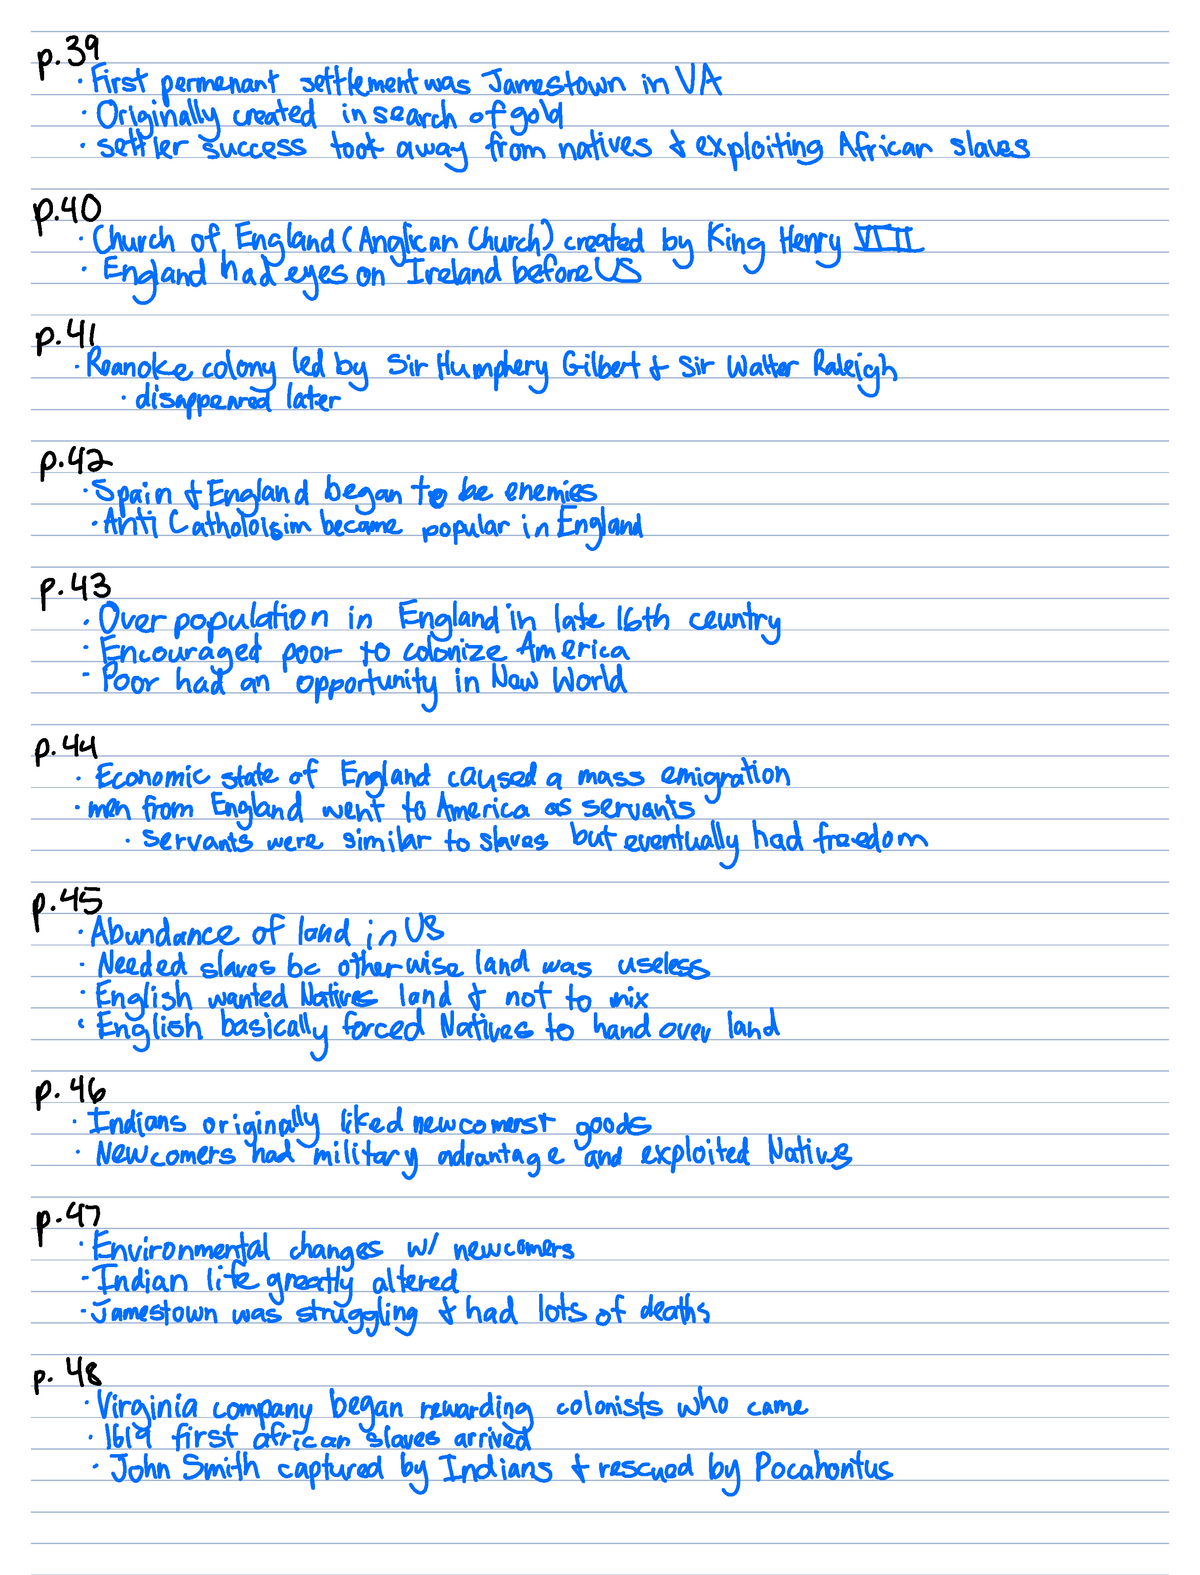 p.39
· First permenant settlement was Jamestown in VA
· Originally created in search of gold
· settler success took away from natives & exploiting African slaves
p.40
· Church of England (Anglican Church) created by King Henry VIII
· England had eyes on Ireland before US
p.41
· Roanoke colony led by Sir Humphery Gilbert & Sir Walter Raleigh
· disappeared later
p.42
· Spain & England began to be enemies
· Anti Catholoisim became popular in England
p.43
· Over population in England in late 16th ceuntry
· Encouraged poor to colonize America
· Poor had an opportunity in New World
p.44
· Economic state of England caused a mass emigration
· men from England went to America as servants
· servants were similar to slaves but eventually had freedom
p.45
· Abundance of land in US
· Needed slaves bc otherwise land was useless
· English wanted Natives land & not to mix
· English basically forced Natives to hand over land
p.46
· Indians originally liked newcomers & goods
· Newcomers had military advantage and exploited Natives
p.47
· Environmental changes w/ newcomers
· Indian life greatly altered
· Jamestown was struggling & had lots of deaths
p. 48
· Virginia company began rewarding colonists who came
· 1619 first african slaves arrived
· John Smith captured by Indians & rescued by Pocahontus